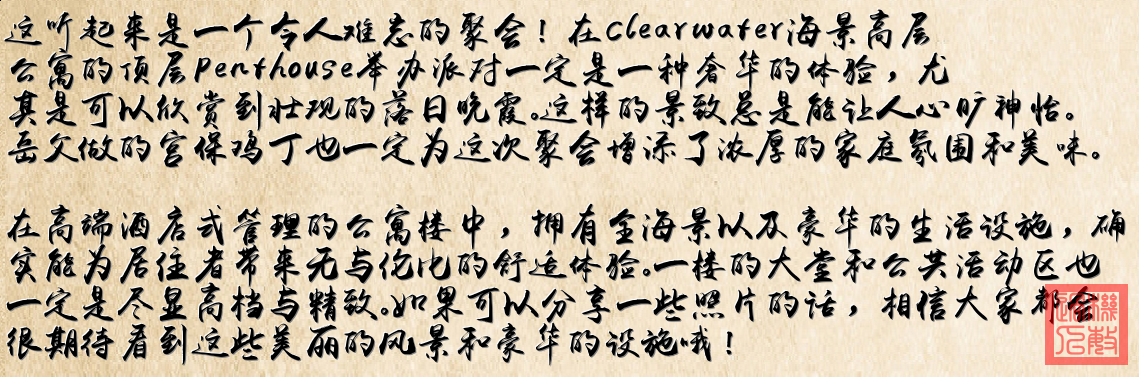 这听起来是一个令人难忘的聚会！在Clearwater海景高层
公寓的顶层Penthouse举办派对一定是一种奢华的体验，尤
其是可以欣赏到壮观的落日晚霞。这样的景致总是能让人心旷神怡。
岳父做的宫保鸡丁也一定为这次聚会增添了浓厚的家庭氛围和美味。
在高端酒店式管理的公寓楼中，拥有全海景以及豪华的生活设施，确
实能为居住者带来无与伦比的舒适体验。一楼的大堂和公共活动区也
一定是尽显高档与精致。如果可以分享一些照片的话，相信大家都会
很期待看到这些美丽的风景和豪华的设施哦！